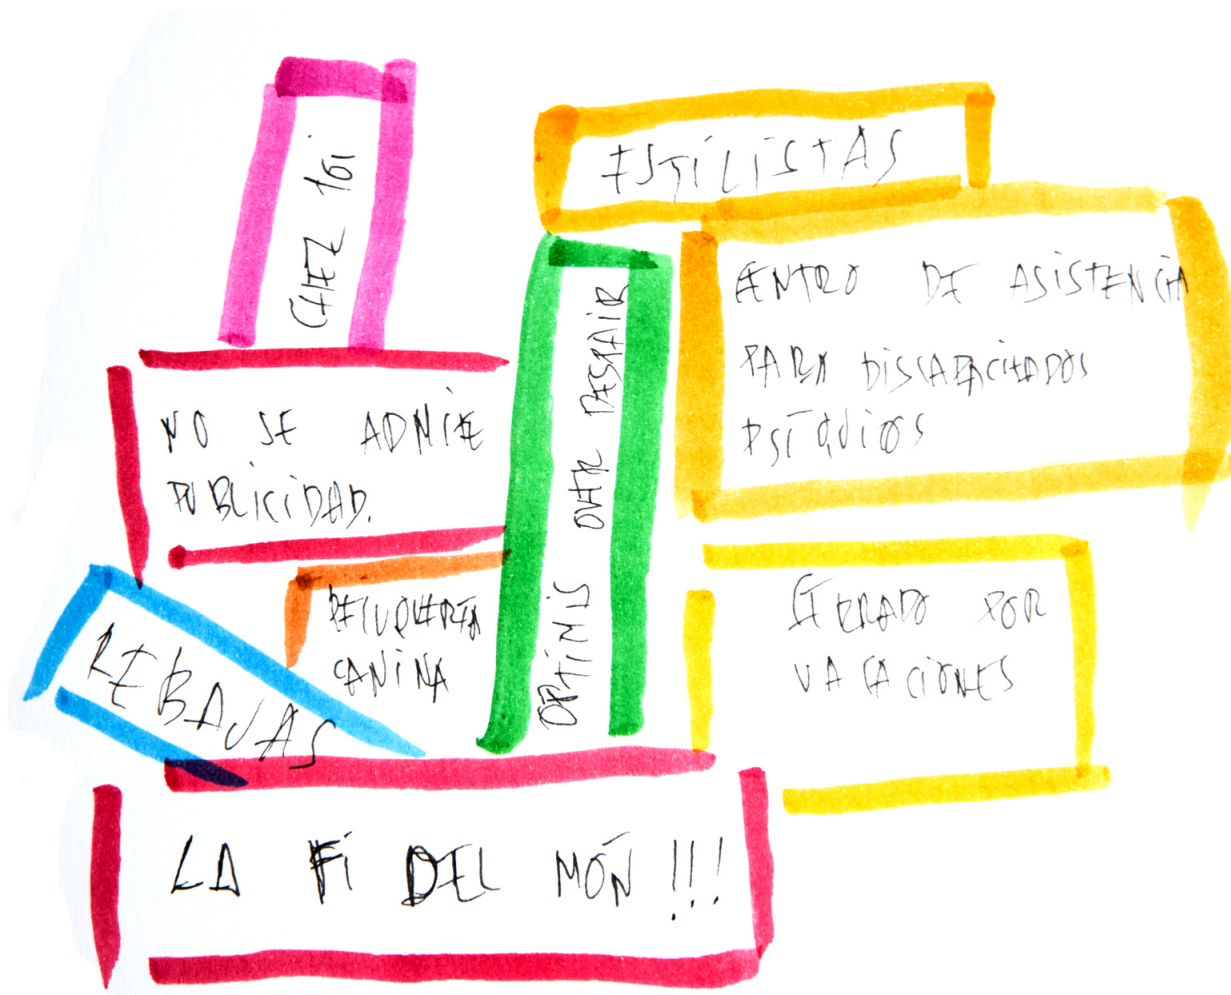 CHEZ toi
ESTILISTAS
CENTRO DE ASISTENCIA
PARA DISCAPACITADOS
PSÍQUICOS
NO SE ADMITE
PUBLICIDAD.
OPTIMIS OVER DESPAIR
PELUQUERÍA
CANINA
REBAJAS
CERRADO POR
VACACIONES
LA FI DEL MÓN !!!